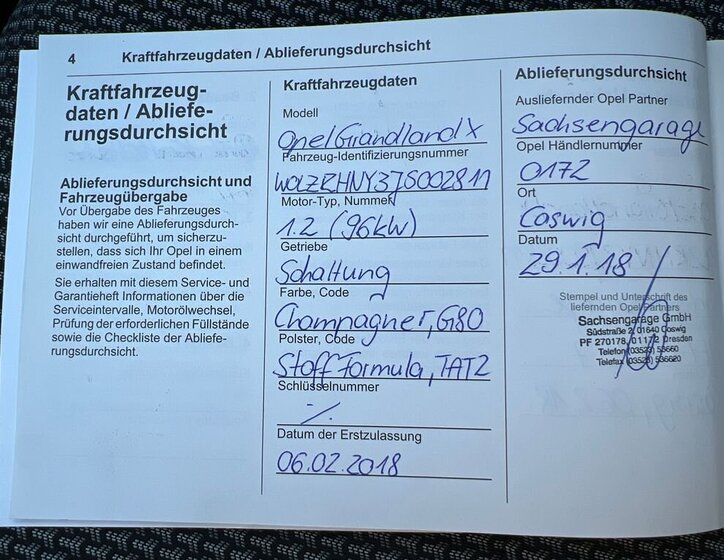 4 Kraftfahrzeugdaten / Ablieferungsdurchsicht
Kraftfahrzeug-
daten / Abliefe-
rungsdurchsicht
Ablieferungsdurchsicht und
Fahrzeugübergabe
Vor Übergabe des Fahrzeuges
haben wir eine Ablieferungsdurch-
sicht durchgeführt, um sicherzu-
stellen, dass sich Ihr Opel in einem
einwandfreien Zustand befindet.
Sie erhalten mit diesem Service- und
Garantieheft Informationen über die
Serviceintervalle, Motorölwechsel,
Prüfung der erforderlichen Füllstände
sowie die Checkliste der Abliefe-
rungsdurchsicht.
Kraftfahrzeugdaten
Modell
Opel Grandland X
Fahrzeug-Identifizierungsnummer
Motor-Typ, Nummer
1.2 (96kW)
Getriebe
Schaltung
Farbe, Code
Champagner, G80
Polster, Code
Stoff Formula, TAT2
Schlüsselnummer
./.
Datum der Erstzulassung
06.02.2018
Ablieferungsdurchsicht
Ausliefernder Opel Partner
Sachsengarage
Opel Händlernummer
0172
Ort
Coswig
Datum
29.1.18
Stempel und Unterschrift des
liefernden Opel Partners
Sachsengarage GmbH
Südstraße 2, 01640 Coswig
PF 270178, 01172 Dresden
Telefon (03523)
Telefax (03523)